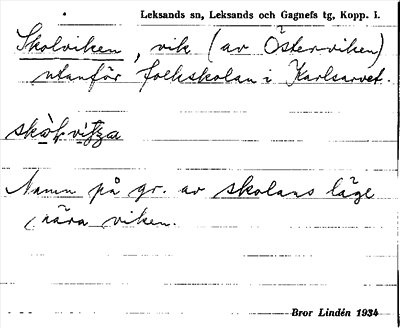 Leksands sn, Leksands och Gagnefs tg, Kopp. l.
Skolviken, vik (av Österviken)
utanför folkskolan i Karlsarvet.
Namn på gr. av skolans läge
nära viken.
Bror Lindén 1934